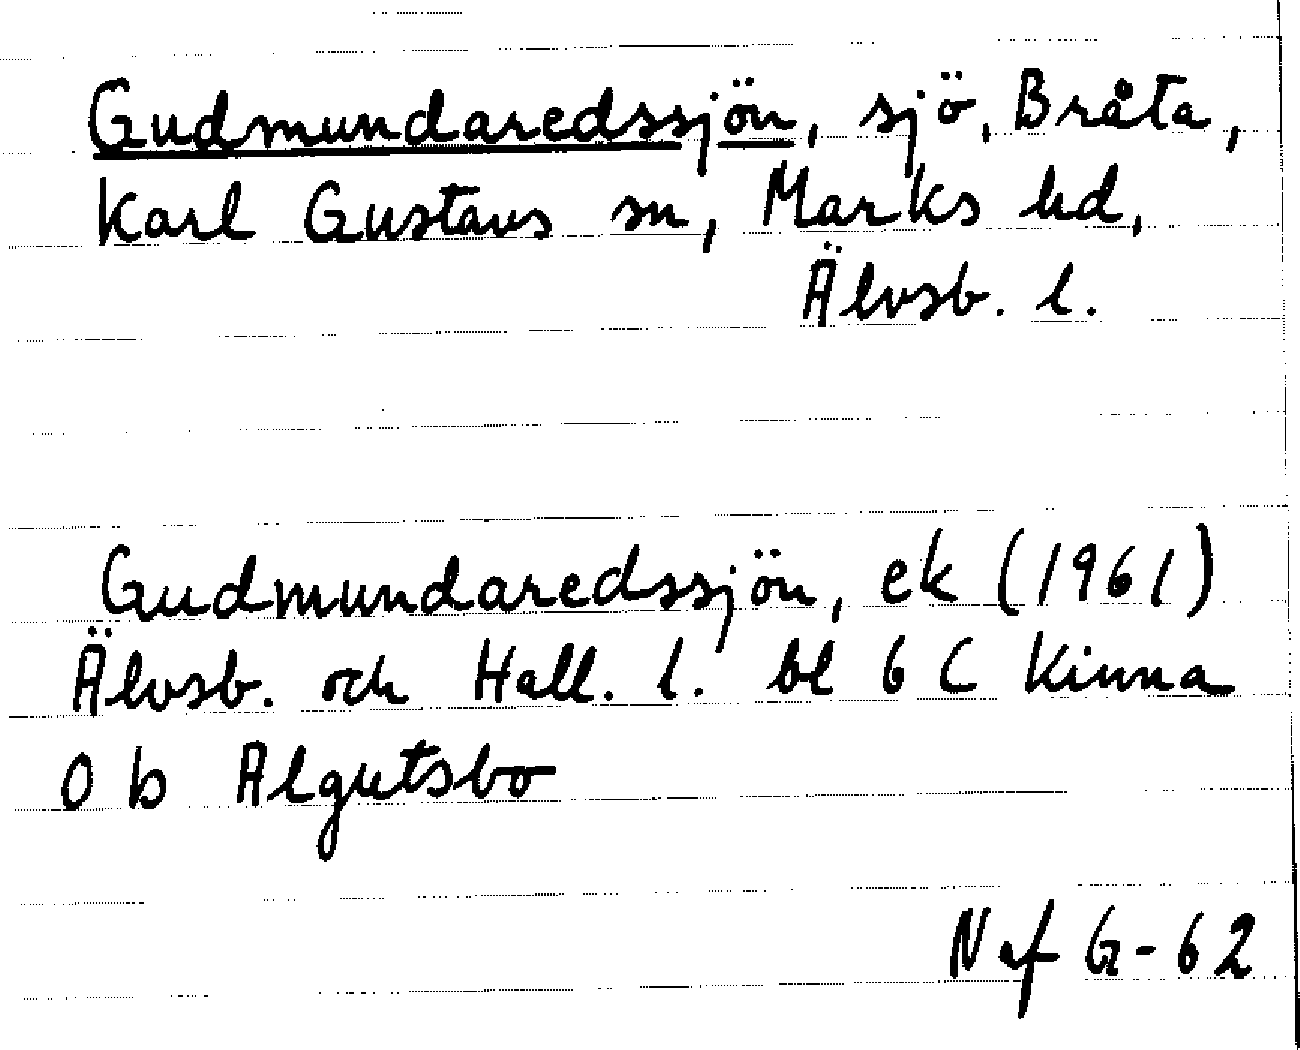 Gudmundaredssjön, sjö, Bråta,
Karl Gustavs sn, Marks hd,
Älvsb. l.
Gudmundaredssjön, ek (1961)
Älvsb. och Hall. l. bl 6 C Kinna
0 b Algutsbo
Naf G-62